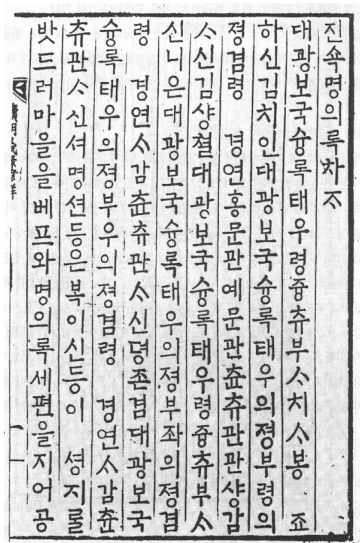 진쇽명의록차ᄌᆞ
대광보국슝록태우령즁츄부ᄉᆞ치ᄉᆞ봉 죠
하신김치인대광보국슝록태우의졍부령의
졍겸령 경연홍문관예문관츈츄관관샹감
ᄉᆞ신김샹쳘대광보국슝록태우령즁츄부ᄉᆞ
신니은대광보국슝록태우의졍부좌의졍겸
령 경연ᄉᆞ감츈츄관ᄉᆞ신뎡존겸대광보국
슝록태우의졍부우의졍겸령 경연ᄉᆞ감츈
츄관ᄉᆞ신셔명션등은복이신등이 셩지ᄅᆞᆯ
밧드러마을을베프와명의록세편을지어공